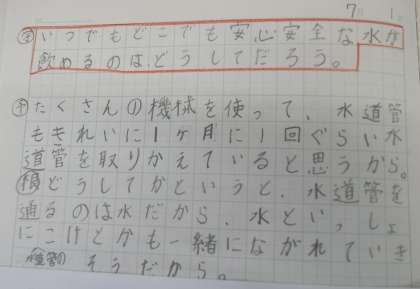 7 1
いつでもどこでも安心安全な水が
飲めるのはどうしてだろう。
予 たくさんの機械を使って、水道管
もきれいに1ヶ月に1回ぐらい水
道管を取りかえていると思うから。
どうしてかというと、水道管を
通るのは水だから、水といっしょ
にこけとかも一緒にながれていき
そうだから。